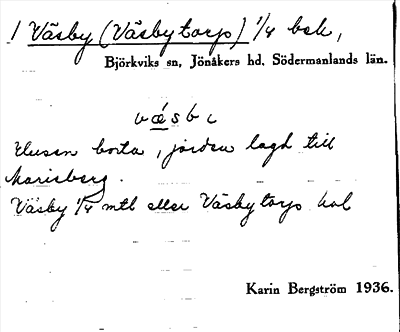 1 Väsby (Väsbytorp) 1/4 bsk,
Björkviks sn, Jönåkers hd, Södermanlands län.
vǽsbɩ
Husen borta, jorden lagd till
Marieberg.
Väsby 1/4 mtl eller Väsbytorp kal
Karin Bergström 1936.